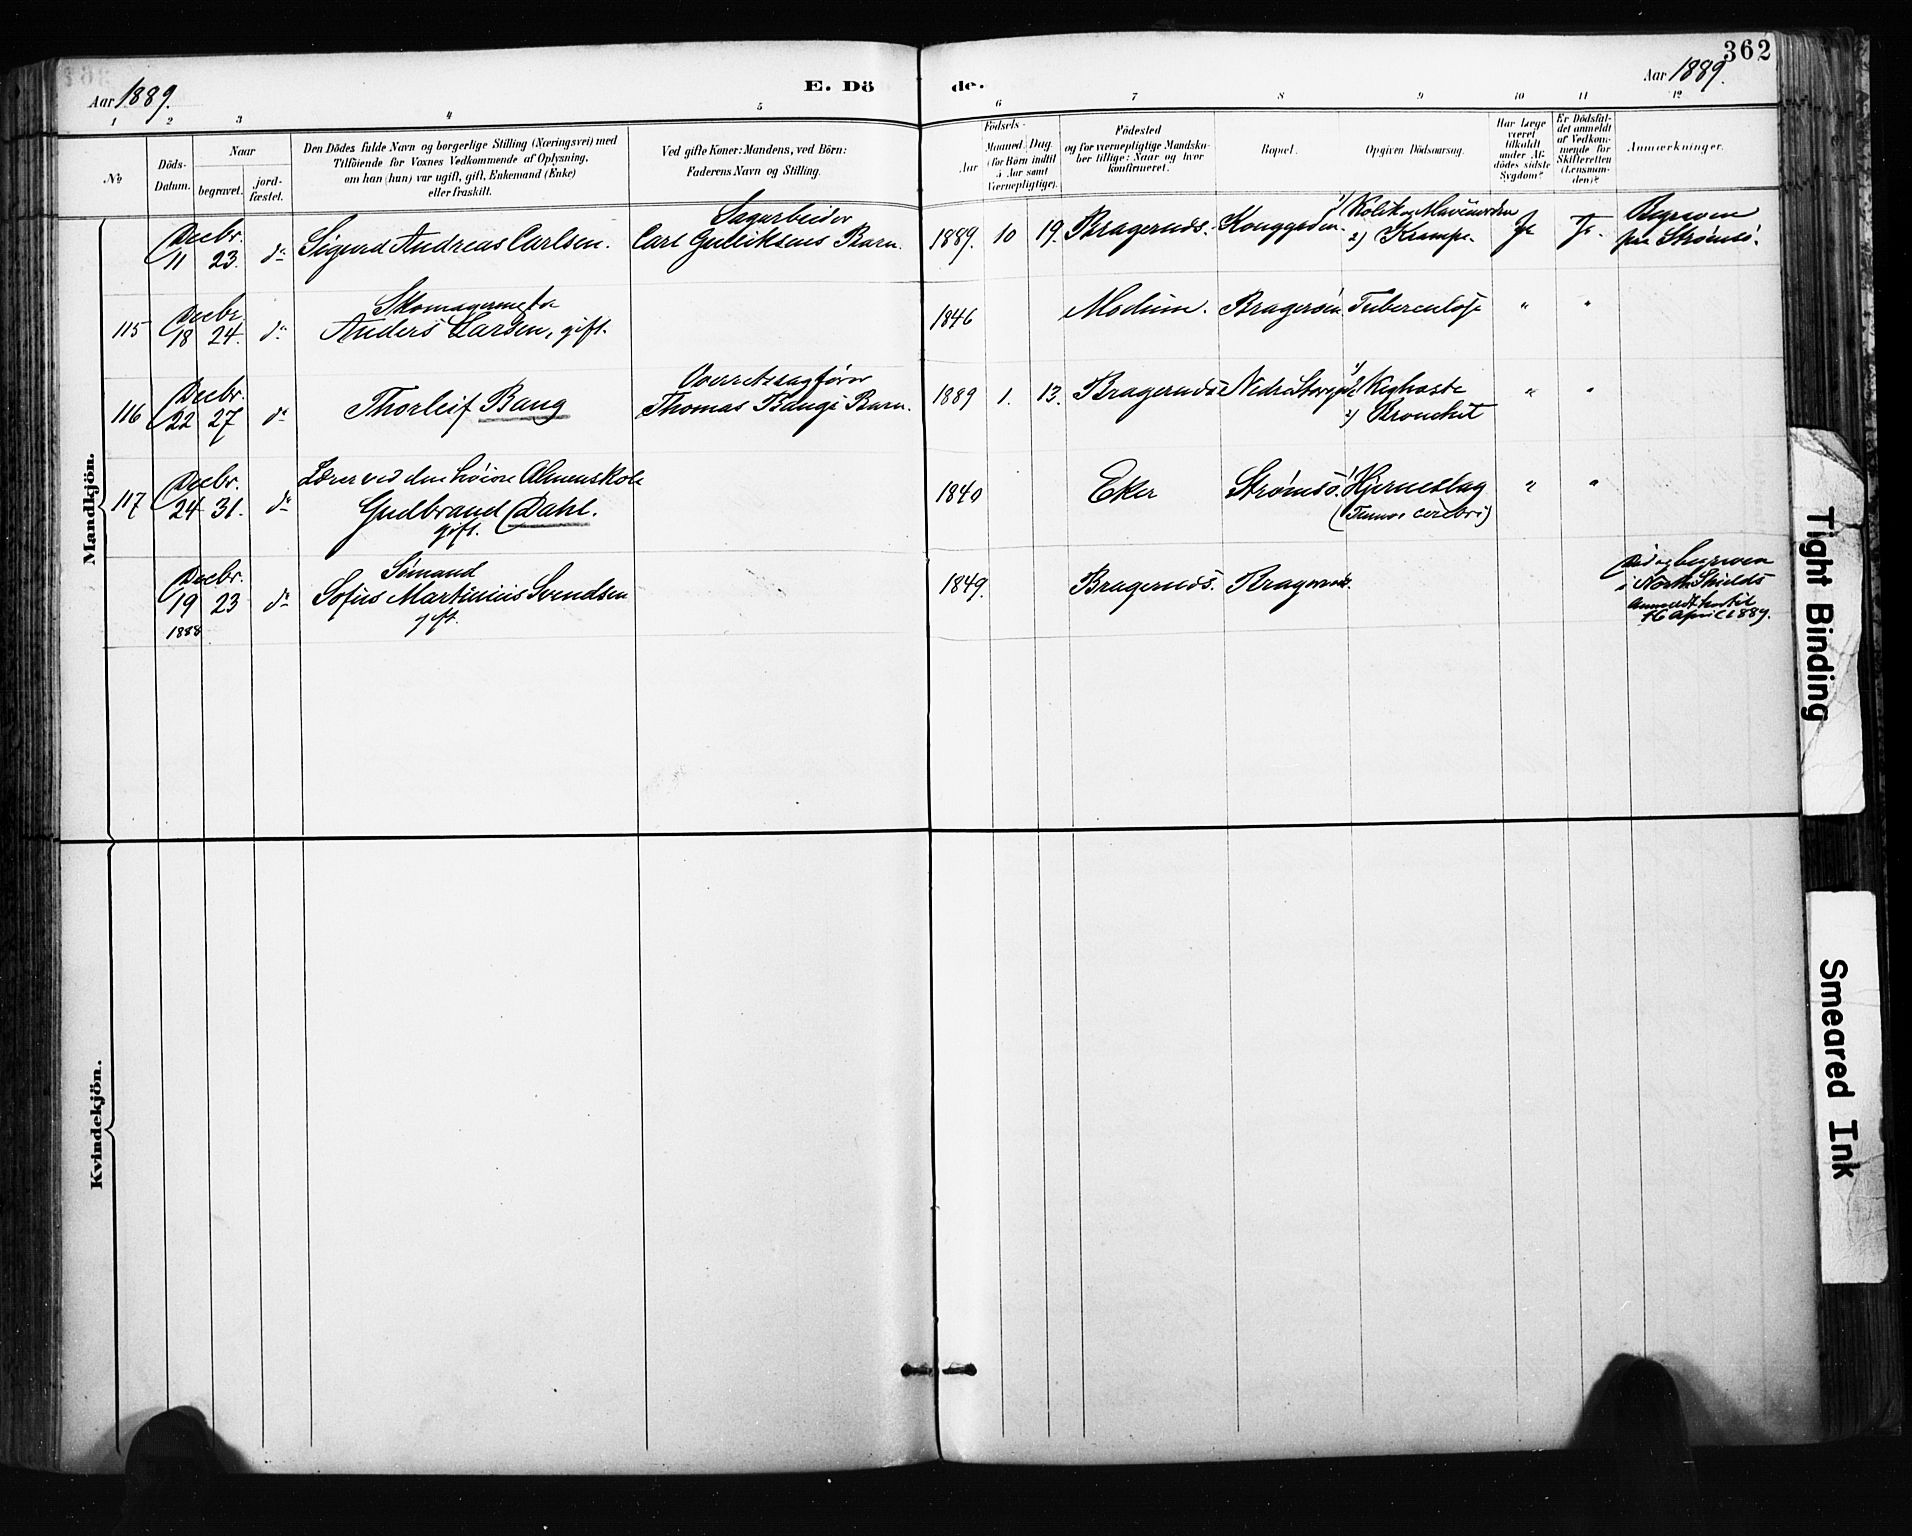 362
Aar 1889.
E. Dö de.
Aar 1889.
1 2 3 4 5 6 7 8 9 10 11 12
№
Döds-
Datum.
Naar
begravet.
jord-
fæstet.
Den Dödes fulde Navn og borgerlige Stilling (Næringsvei) med
Tilföiende for Voxnes Vedkommende af Oplysning,
om han (hun) var ugift, gift, Enkemand (Enke)
eller fraskilt.
Ved gifte Koner: Mandens, ved Börn:
Faderens Navn og Stilling.
Födsels-
Aar
Maaned. Dag.
(for Börn indtil
Aar samt
Værnepligtige).
Födested
og for værnepligtige Mandska-
ber tillige: Naar og hvor
konfirmeret.
Bopæl.
Opgiven Dödsaarsag.
Har Læge
været
tilkaldt
under Af-
dödes sidste
Sygdom?
Er Dödsfal-
det anmeldt
af Vedkom-
mende for
Skifteretten
(Lensman-
den)?
Anmærkninger.
Mandkjön.
Decbr. 11 23. do Sigurd Andreas Carlsen.
Sagarbeider
Carl Gulliksens Barn.
1889. 10 19. Bragernæs.
1) Kolik
2) Krampe.
Ja Ja.
Begraven
paa Strømsö.
115 Decbr. 18 24. do
Anders Larsen, gift.
1846 Modum. Bragerøen Tuberculose " "
116 Decbr. 22 27 do Thorleif Bang
Overretssagfører
Thomas Bangs Barn.
1889 1. 13. Bragernæs
1) Kighoste
2) Bronchit
" "
117 Decbr. 24 31. do
Lærer ved den høiere Almenskole
Gudbrand Dahl.
gift.
1840 Eker Strømsö. Hjerneslag
(Tumor cerebri)
" "
Decbr. 19 23 do
1888
Sømand
Sofus Martinius Svendsen
gift.
1849. Bragernæs. Bragernæs.
Död og begraven
i North Shields
Anmeldt hertil
16 April 1889.
Kvindekjön.
Tight Binding
Smeared Ink